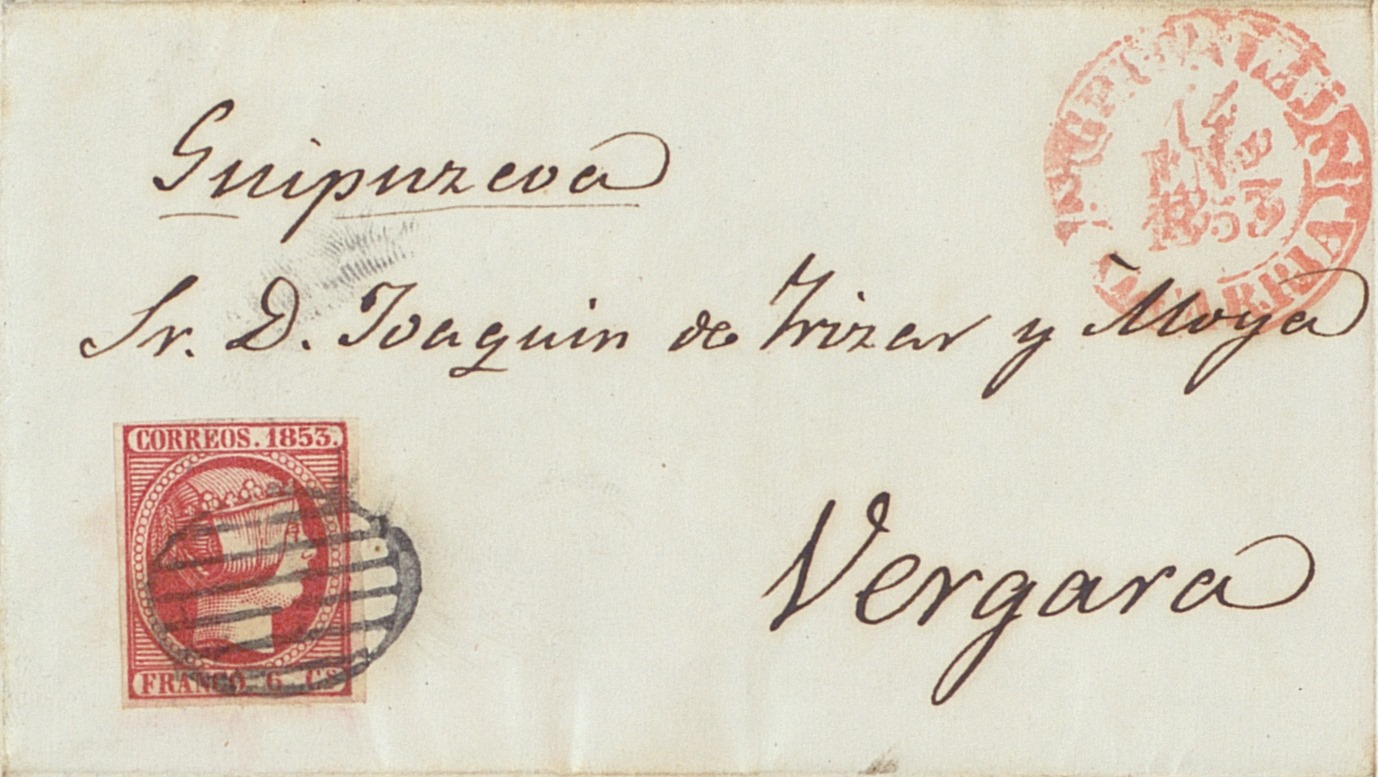 Guipuzcoa
14
ENE
1853
Sr. D. Joaquin de Yrizar y Moya
CORREOS. 1853.
Vergara
FRANCO. 6 CS